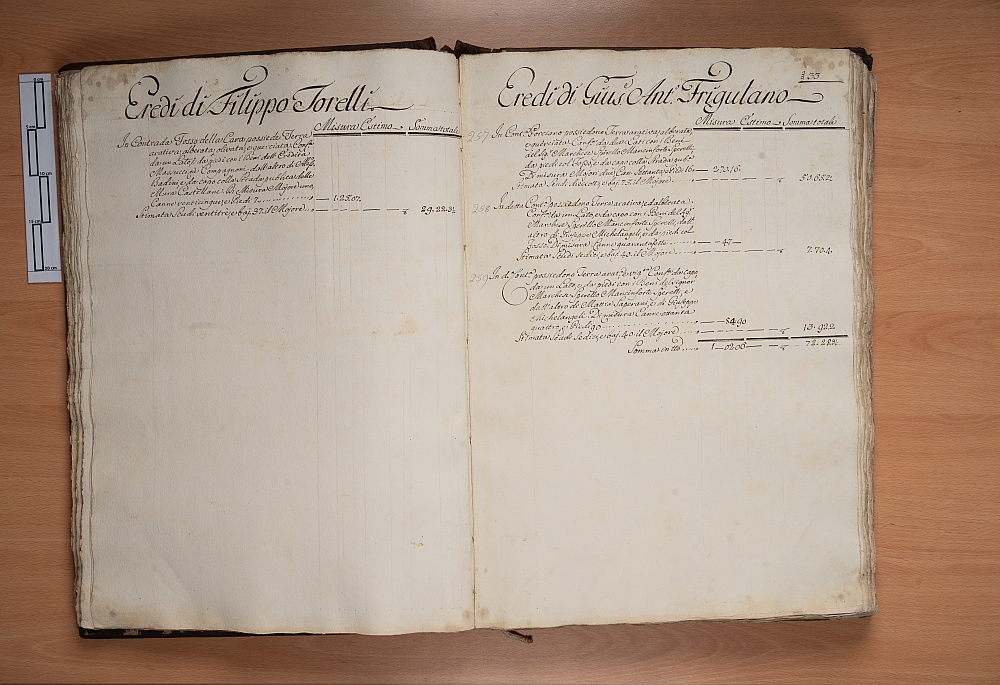 Eredi di Filippo Torelli
Misura Estimo Somma totale
In Contrada Fosso della Cava possiede Terra
arativa, alberata, olivata, e querciata Conf.a
da un Lato, e da piedi con i Beni dell'
Massucci, e Compagnoni, dall'altro di
Badini, e da capo colla Strada publica delle
Mura Castellane. Di Misura Mojore uno,
Canne venticinque, e Piedi 7 1.25.07.
Stimata Scudi ventitrè, e baj. 37. il Mojore 29.22.3½
133
Eredi di Gius. Ant.o Frigulano
Misura Estimo Somma totale
257 In Cont.a Porciano possiedono Terra arativa, alberata,
e querciata Conf.a da due Lati con i Beni
del Sig.r Marchese Sperello Mancinforte Sperelli,
da piedi col Fosso, e da capo colla Strada publ.a
Di misura Mojori due, Can. Settanta, e Piedi 16 2.70.16.
Stimata Scudi dieciotto, e baj. 75. il Mojore 50.65.2½
258 In detta Cont.a possiedono Terra arativa, ed alberata
Conf.a da un Lato, e da capo con i Beni del Sig.r
Marchese Sperello Mancinforte Sperelli, dall'
altro di Giuseppe Michelangeli, e da piedi col
Fosso. Di misura Canne quarantasette 47
Stimata Scudi sedici, e baj. 40. il Mojore 7.70.4
259 In d.a Cont.a possiedono Terra arat.a, e vig.a Conf.a da capo
da un Lato, e da piedi con i Beni del Signor
Marchese Sperello Mancinforte Sperelli, e
dall'altro di Mattia e di Giuseppe
Michelangeli. Di misura Canne ottanta
quattro, e Piedi 90 84.90
Stimata Scudi Sedici, e baj. 40. il Mojore 13.92.2
Somma in tt.o 72.28.2½